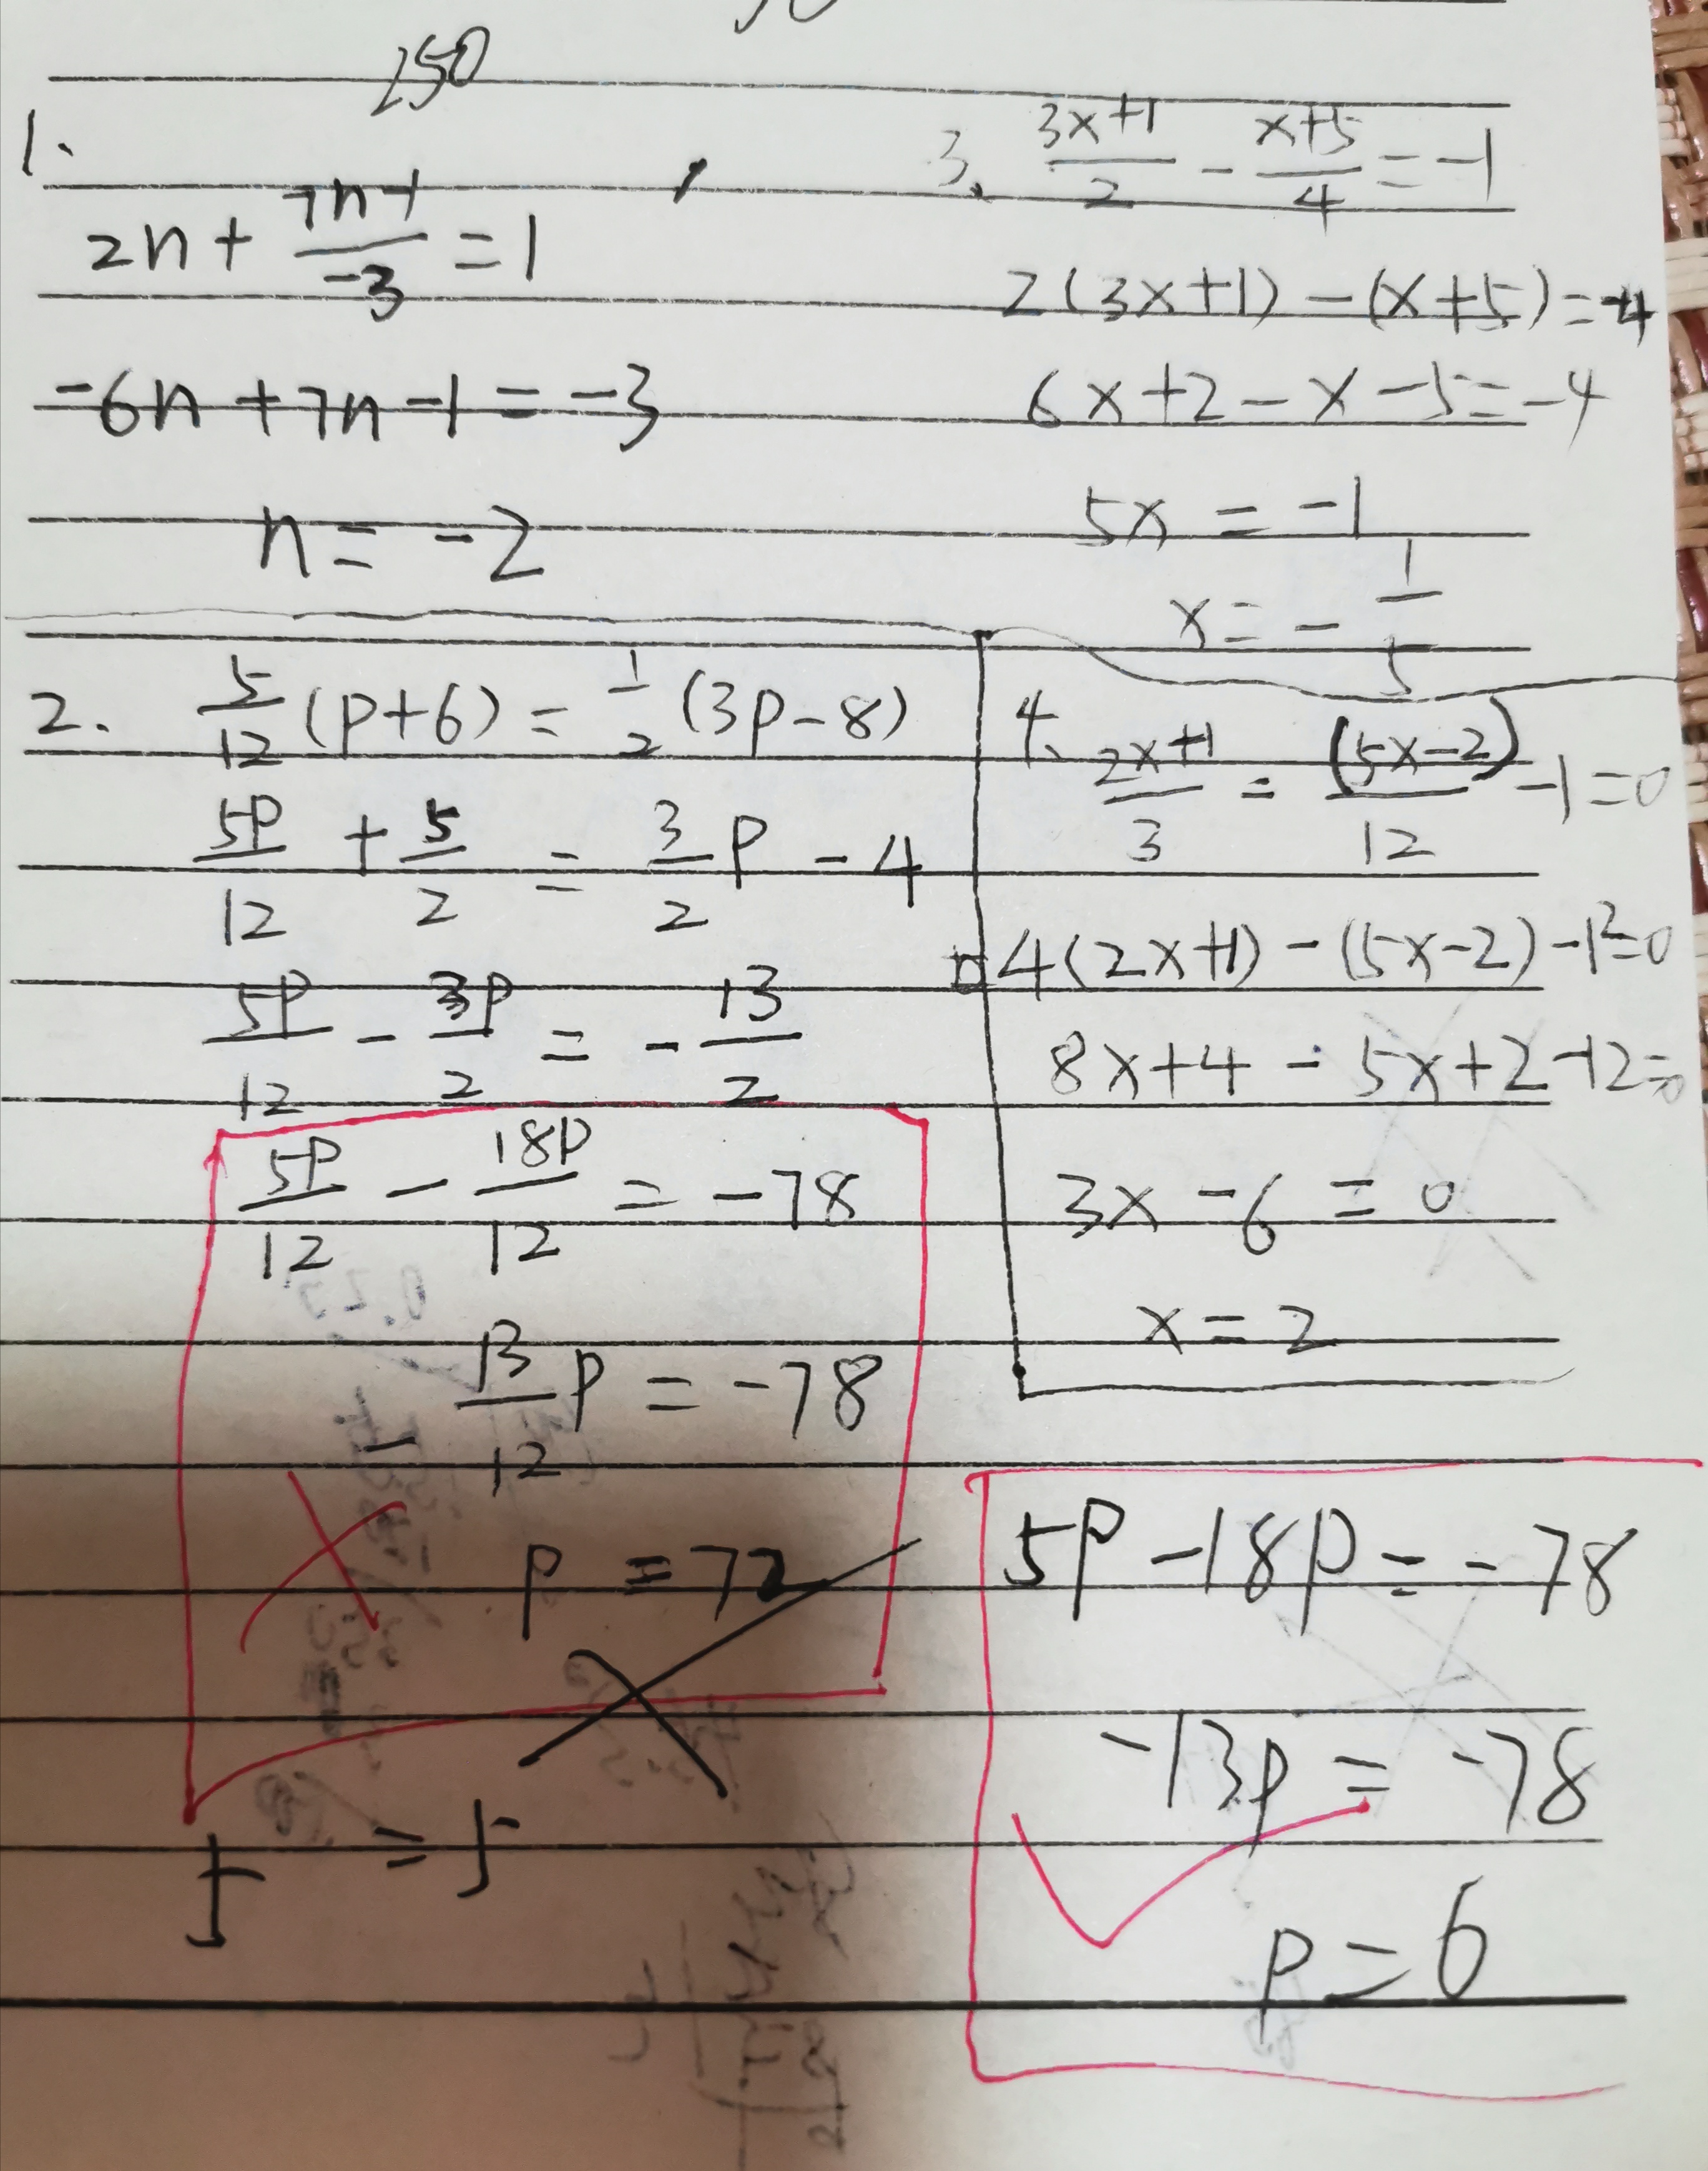 250
1.
2n + \frac{7n-1}{-3} = 1
-6n + 7n - 1 = -3
n = -2
2. \frac{5}{12}(p+6) = \frac{1}{2}(3p-8)
\frac{5p}{12} + \frac{5}{2} = \frac{3}{2}p - 4
\frac{5p}{12} - \frac{3p}{2} = -\frac{13}{2}
\frac{5p}{12} - \frac{18p}{12} = -78
-\frac{13}{12}p = -78
p = 72
5 = 5
3. \frac{3x+1}{2} - \frac{x+5}{4} = -1
2(3x+1) - (x+5) = -4
6x+2-x-5=-4
5x = -1
x = -\frac{1}{5}
4. \frac{2x+1}{3} = \frac{(5x-2)}{12} -1=0
4(2x+1) - (5x-2) -12=0
8x+4 - 5x+2-12=0
3x - 6 = 0
x = 2
5p - 18p = -78
-13p = -78
p = 6